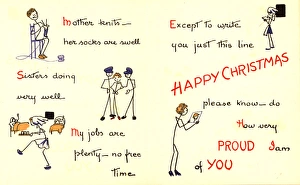 Mother knits—
her socks are swell
Sisters doing
very well
My jobs are
plenty— no free
time
Except to write
you just this line
HAPPY CHRISTMAS
please know— do
How very
PROUD I am
of YOU